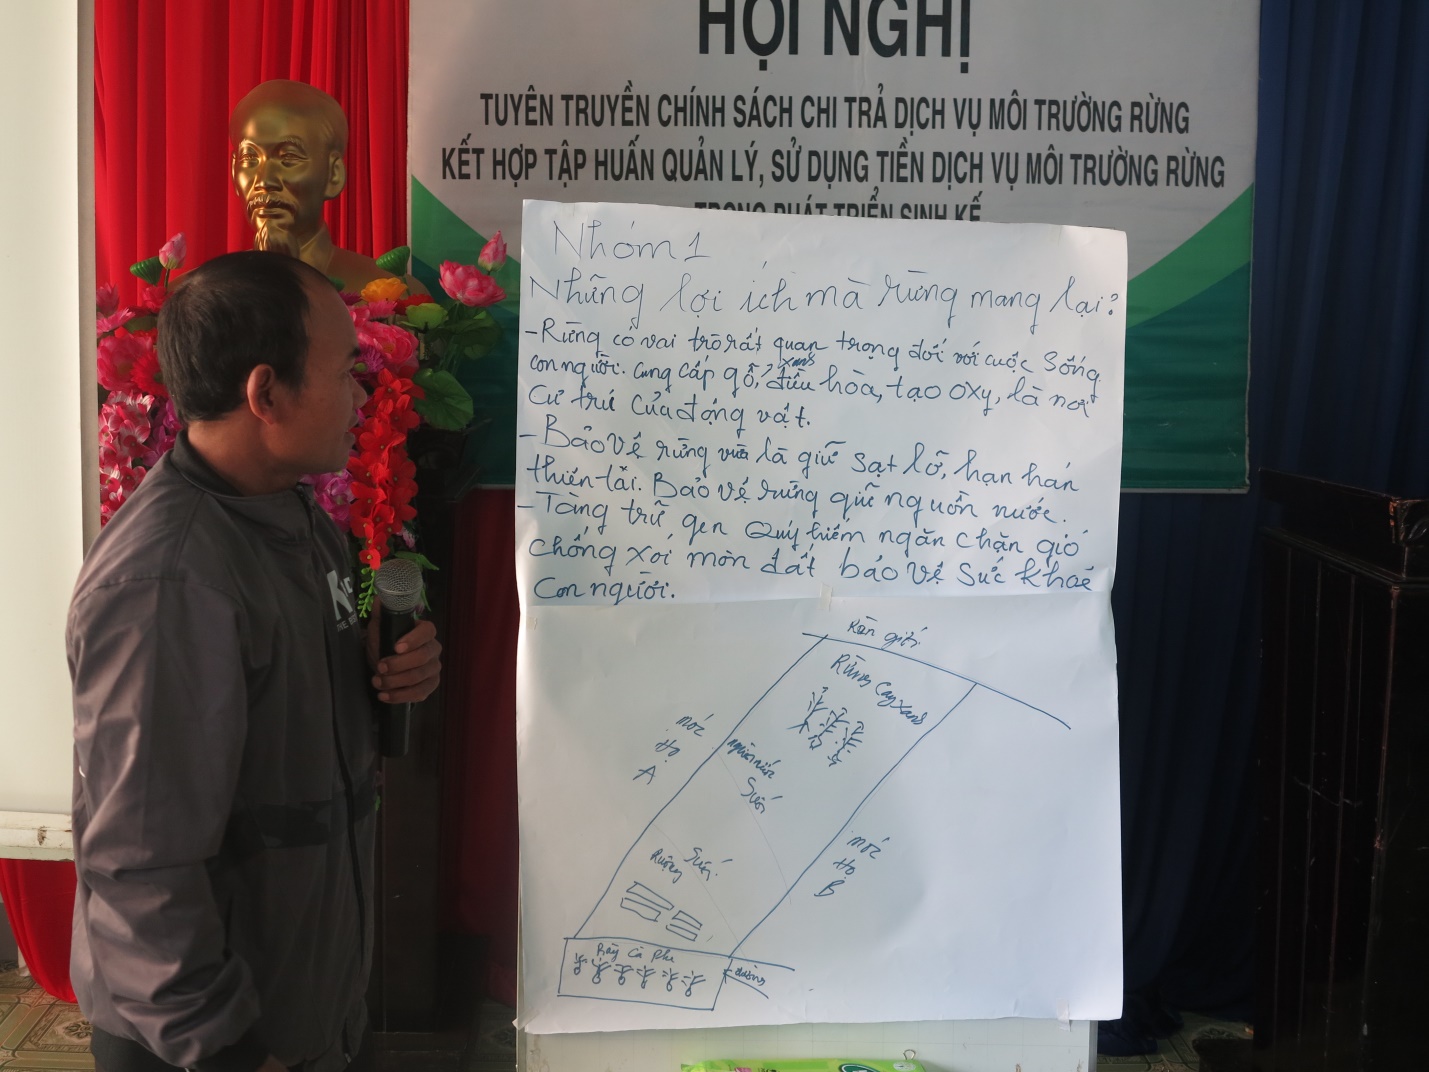 HỘI NGHỊ
TUYÊN TRUYỀN CHÍNH SÁCH CHI TRẢ DỊCH VỤ MÔI TRƯỜNG RỪNG
KẾT HỢP TẬP HUẤN QUẢN LÝ, SỬ DỤNG TIỀN DỊCH VỤ MÔI TRƯỜNG RỪNG
TRONG PHÁT TRIỂN SINH KẾ
Nhóm 1
Những lợi ích mà rừng mang lại?
- Rừng có vai trò rất quan trọng đối với cuộc sống
con người. cung cấp gỗ, điều hòa, tạo oxy, là nơi
xanh
Cư trú của động vật.
- Bảo vệ rừng vừa là giữ sạt lỡ, hạn hán
thiên tai. Bảo vệ rừng giữ nguồn nước.
- Tàng trữ gen Quý hiếm ngăn chặn gió
chống xoi mòn đất bảo vệ sức khoẻ
Con người.
Ran giới
Rừng Cay xanh
mốc
Họ
A
nguồn nước
Suối
mốc
Họ
B
Suối
Ruộng
Rẫy Cà phê
đường